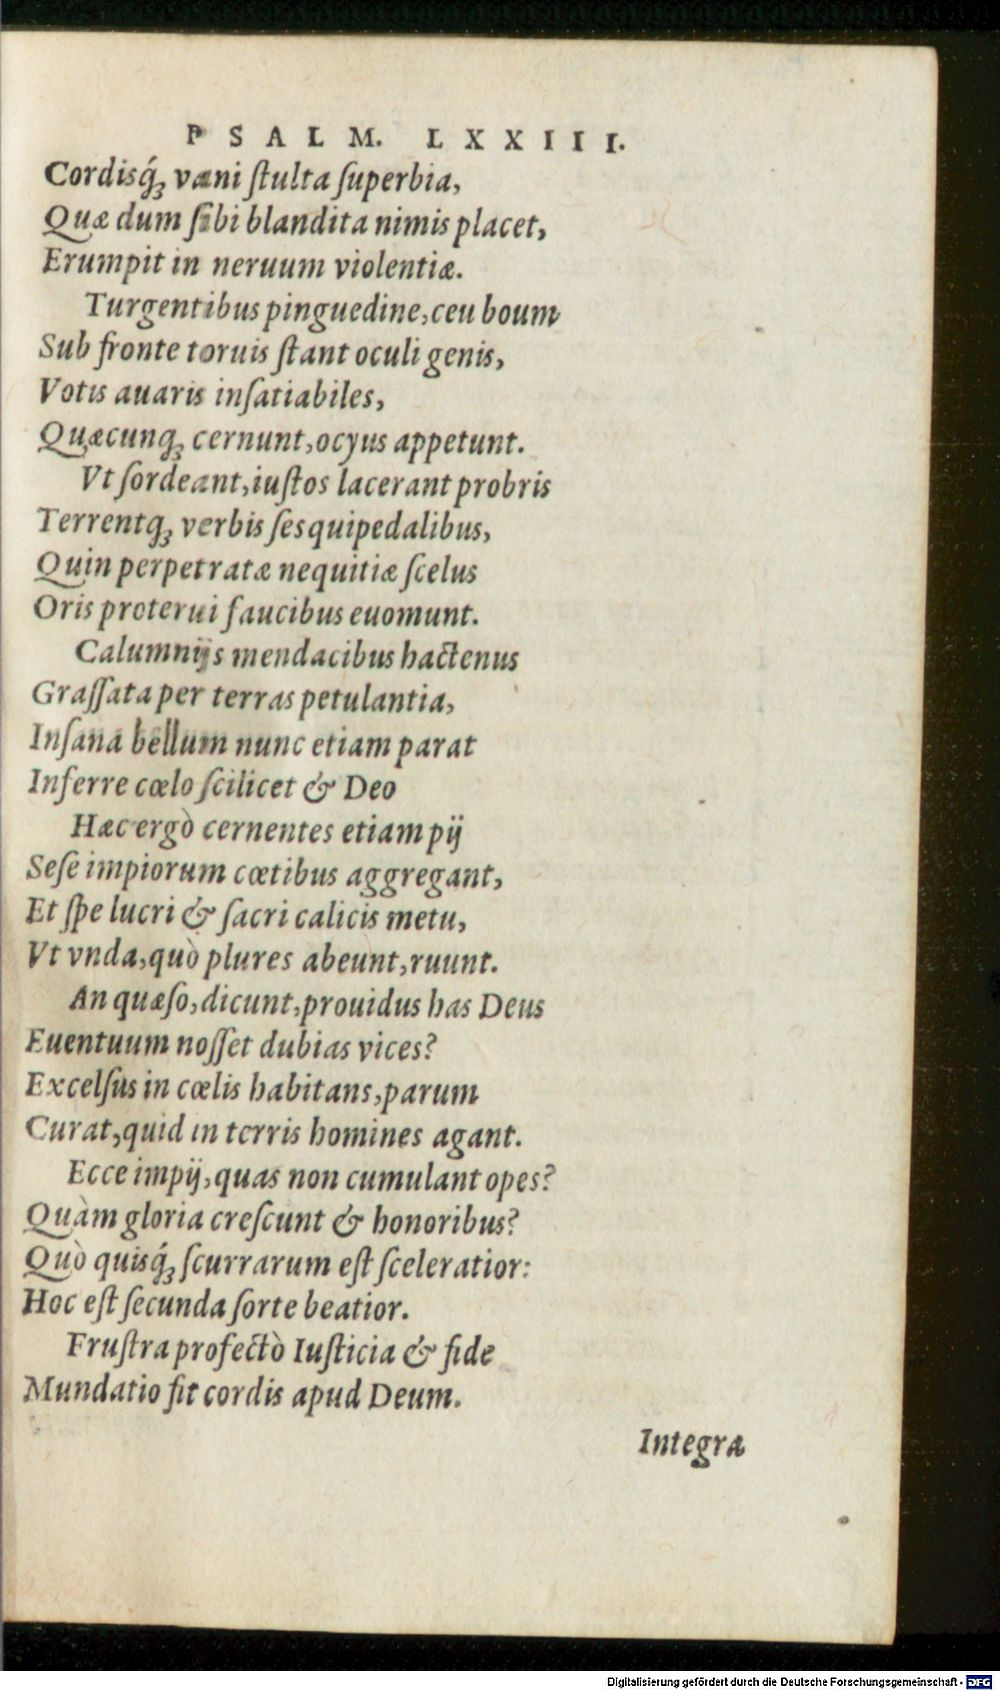 PSALM. LXXIII.
Cordisq́ꝫ vani ſtulta ſuperbia,
Quæ dum ſibi blandita nimis placet,
Erumpit in neruum violentiæ.
Turgentibus pinguedine, ceu boum
Sub fronte toruis ſtant oculi genis,
Votis auaris inſatiabiles,
Quæcunqꝫ cernunt, ocyus appetunt.
Vt ſordeant, iuſtos lacerant probris
Terrentqꝫ verbis ſesquipedalibus,
Quin perpetratæ nequitiæ ſcelus
Oris proterui faucibus euomunt.
Calumnijs mendacibus hactenus
Graſſata per terras petulantia,
Inſana bellum nunc etiam parat
Inferre cœlo ſcilicet & Deo
Hæc ergò cernentes etiam pij
Seſe impiorum cœtibus aggregant,
Et ſpe lucri & ſacri calicis metu,
Vt vnda, quò plures abeunt, ruunt.
An quæſo, dicunt, prouidus has Deus
Euentuum noſſet dubias vices?
Excelſus in cœlis habitans, parum
Curat, quid in terris homines agant.
Ecce impij, quas non cumulant opes?
Quàm gloria creſcunt & honoribus?
Quò quisq́ꝫ ſcurrarum eſt ſceleratior:
Hoc eſt ſecunda ſorte beatior.
Fruſtra profectò Iuſticia & fide
Mundatio fit cordis apud Deum.
Integra
Digitalisierung gefördert durch die Deutsche Forschungsgemeinschaft - DFG